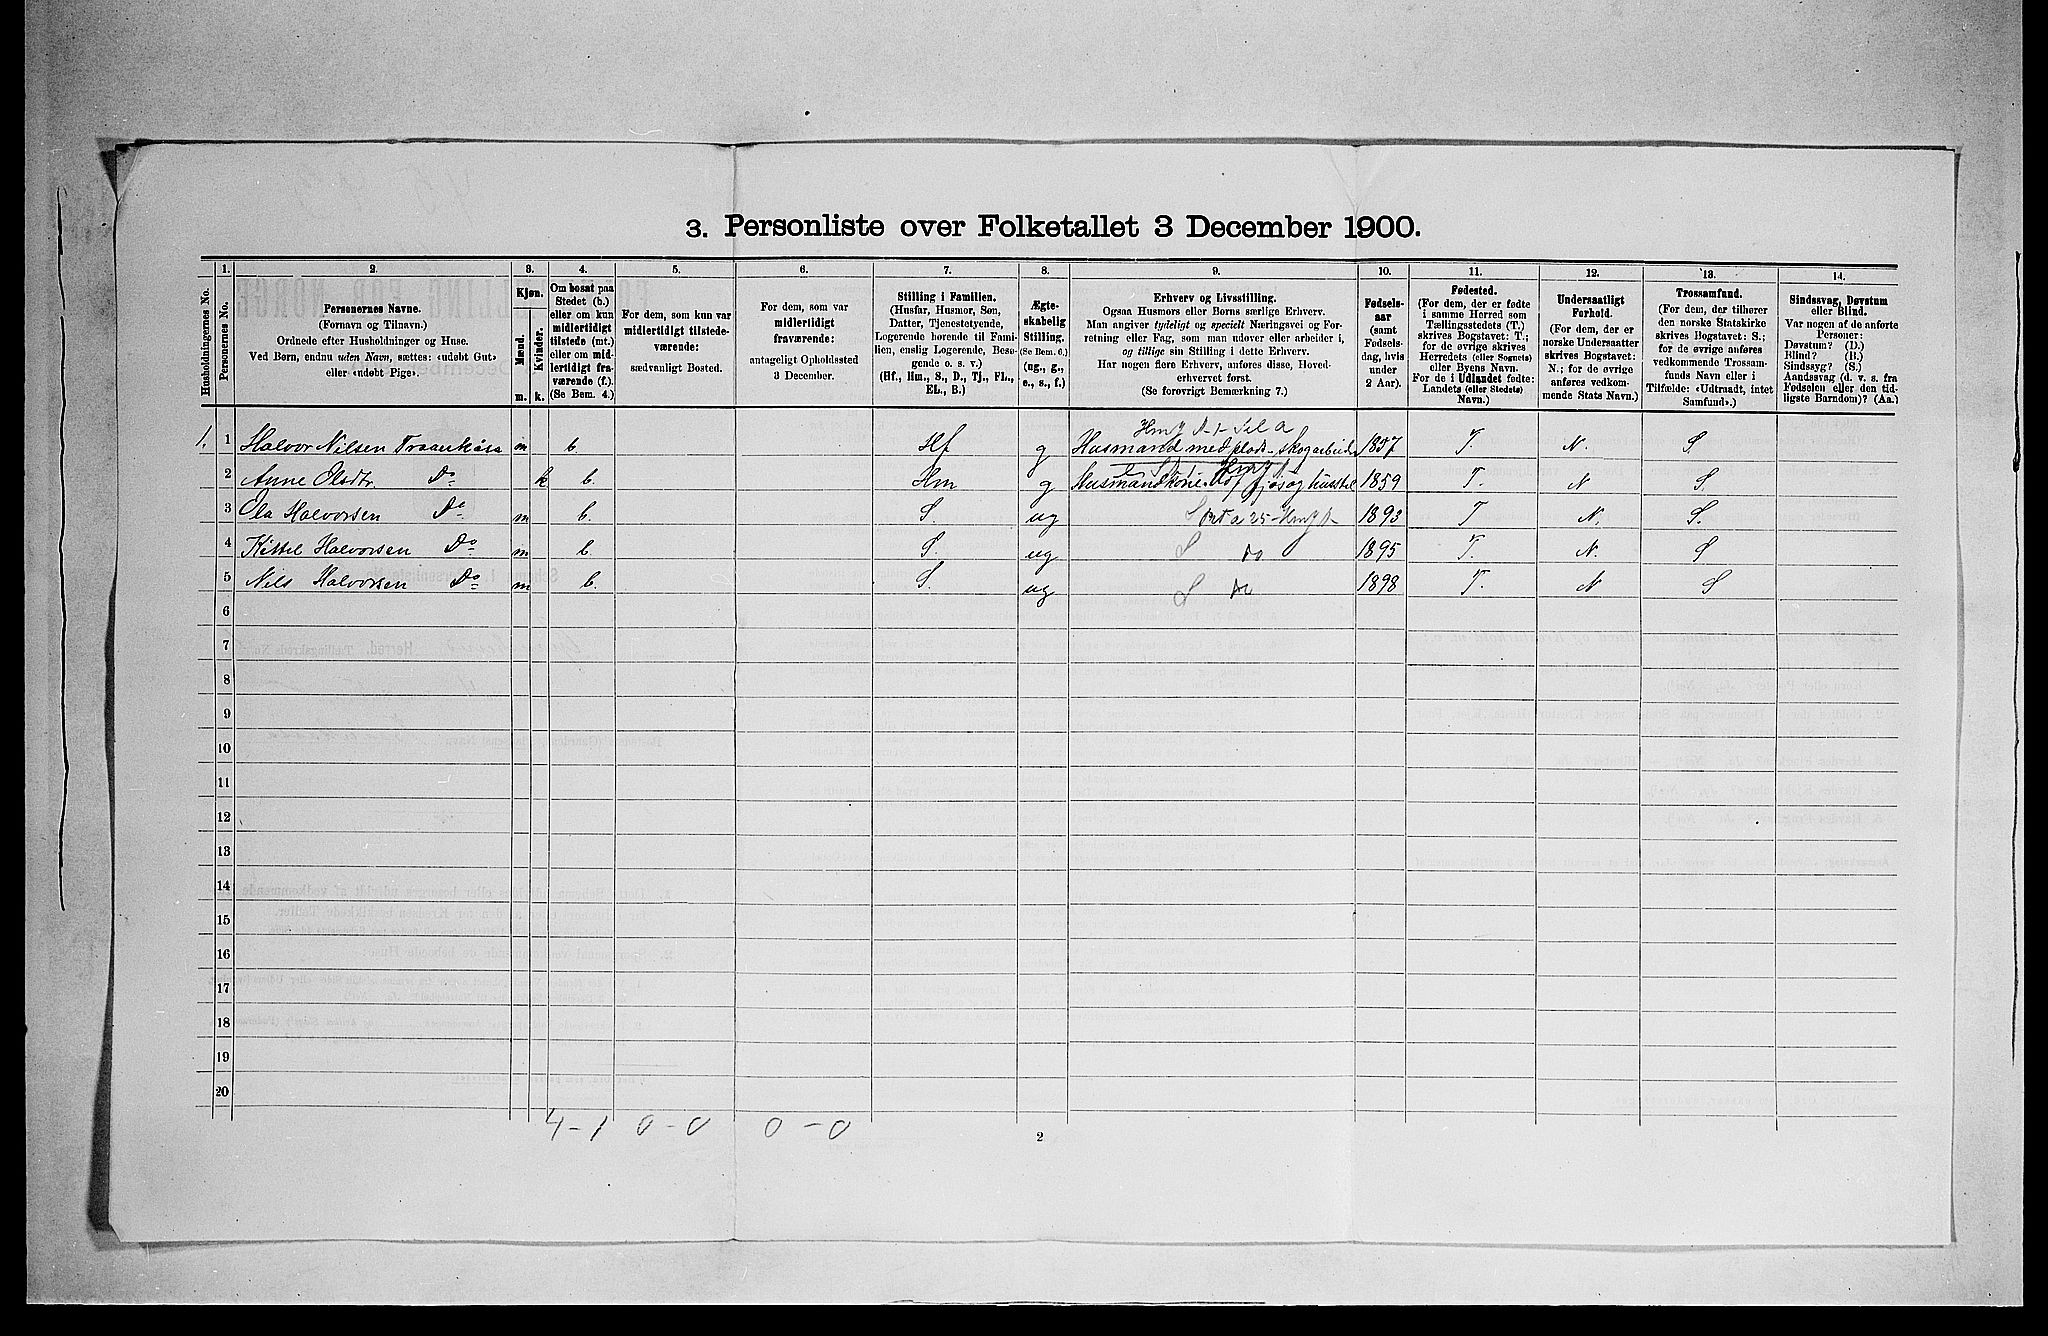 3. Personliste over Folketallet 3 December 1900.
Husholdningernes No.
1.
Personernes No.
2.
Personernes Navne.
(Fornavn og Tilnavn.)
Ordnede efter Husholdninger og Huse.
Ved Børn, endnu uden Navn, sættes: «udøbt Gut»
eller «udøbt Pige».
3.
Kjøn.
Mænd.
m.
Kvinder.
k.
4.
Om bosat paa
Stedet (b.)
eller om kun
midlertidigt
tilstede (mt.)
eller om mid-
lertidigt fra-
værende (f.).
(Se Bem. 4.)
5.
For dem, som kun var
midlertidigt tilstede-
værende:
sædvanligt Bosted.
6.
For dem, som var
midlertidigt
fraværende:
antageligt Opholdssted
3 December.
7.
Stilling i Familien.
(Husfar, Husmor, Søn,
Datter, Tjenestetyende,
Logerende hørende til Fami-
lien, enslig Logerende, Besø-
gende o. s. v.)
(Hf., Hm., S., D., Tj., FL.,
EL., B.)
8.
Ægte-
skabelig
Stilling.
(Se Bem. 6.)
(ug., g.,
e., s., f.)
9.
Erhverv og Livsstilling.
Ogsaa Husmors eller Børns særlige Erhverv.
Man angiver tydeligt og specielt Næringsvei og For-
retning eller Fag, som man udøver eller arbeider i,
og tillige sin Stilling i dette Erhverv.
Har nogen flere Erhverv, anføres disse, Hoved-
erhvervet først.
(Se forøvrigt Bemærkning 7.)
10.
Fødsels-
aar
(samt
Fødsels-
dag, hvis
under
2 Aar).
11.
Fødested.
(For dem, der er fødte
i samme Herred som
Tællingsstedets (T.)
skrives Bogstavet: T.;
for de øvrige skrives
Herredets (eller Sognets)
eller Byens Navn.
For de i Udlandet fødte:
Landets (eller Stedets)
Navn.)
12.
Undersaatligt
Forhold.
(For dem, der er
norske Undersaatter
skrives Bogstavet:
N.; for de øvrige
anføres vedkom-
mende Stats Navn.)
13.
Trossamfund.
(For dem, der tilhører
den norske Statskirke
skrives Bogstavet: S.;
for de øvrige anføres
vedkommende Trossam-
funds Navn eller i
Tilfælde: «Udtraadt, intet
Samfund».)
14.
Sindssvag, Døvstum
eller Blind.
Var nogen af de anførte
Personer:
Døvstum? (D.)
Blind? (B.)
Sindssyg? (S.)
Aandssvag (d. v. s. fra
Fødselen eller den tid-
ligste Barndom)? (Aa.)
1. 1 Halvor Nilsen Traankaasa m b. Hf g Husmand med plads - skogarbeider 1857 T. N. S.
2 Anne Olsdtr. Do k b. Hm g Husmandkone fjøs og husstel 1859 T. N S.
3 Ola Halvorsen Do m b. S. ug S 1893 T N. S.
4 Kittil Halvorsen Do m b. S. ug S do 1895 T. N. S
5 Nils Halvorsen Do m b. S. ug S do 1898 T. N S
6
7
8
9
10
11
12
13
14
15
16
17
18
19
20
4-1 0-0 0-0
2